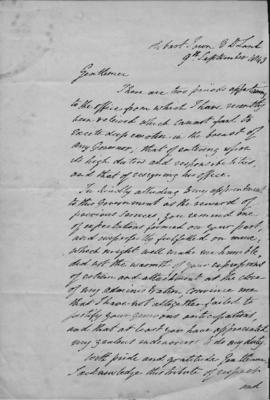 Hobart Town V D Land
9th September 1843
Gentlemen
There are two periods appertaining
to the office, from which I have recently
been relieved which cannot fail to
excite deep emotion in the breast of
any Governor, that of entering upon
its high duties and responsibilities,
and that of resigning his office.
In kindly alluding to my appointment
to this Government as the reward of
previous services, you remind me
of expectations formed on your part,
and purposes by fulfilled on mine,
which might well make me humble
did not the warmth of your expressions
of esteem and attachment at the close
of my administration convince me
that I have not altogether failed to
justify your generous anticipations,
and that at least you have appreciated
my zealous endeavour to do my duty.
With pride and gratitude Gentlemen
I acknowledge this tribute of respect
and